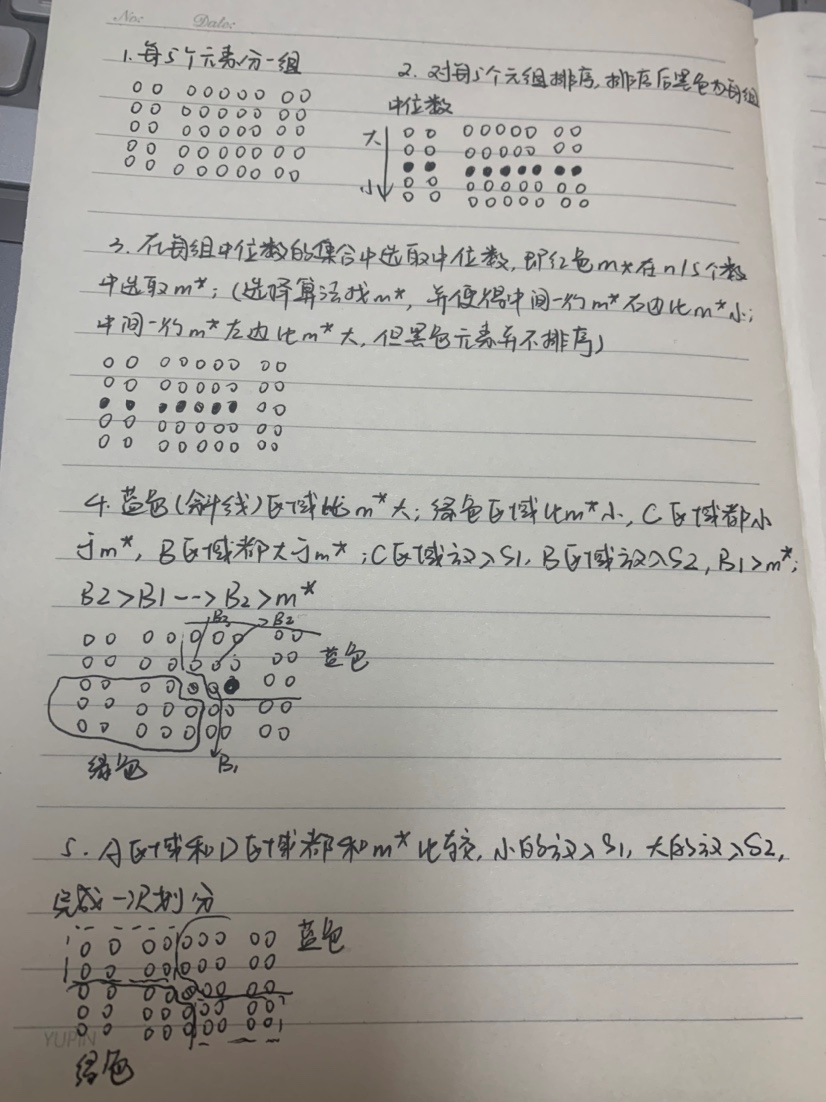 No:    Date:
1. 每5个元素分一组
2. 对每5个元组排序, 排序后黑色为每组
中位数
大
小
3. 在每组中位数的集合中选取中位数, 即红色m*在n/5个数
中选取m*; (选择算法找m*, 并使得中间一行m*右边比m*小;
中间一行m*左边比m*大, 但黑色元素并不排序)
4. 蓝色(斜线)区域比m*大; 绿色区域比m*小, C区域都小
于m*, B区域都大于m*; C区域放入S1, B区域放入S2, B1>m*;
B2>B1-->B2>m*
B3 B2
蓝色
绿色 B1
5. A区域和D区域都和m*比较, 小的放入S1, 大的放入S2,
完成一次划分
蓝色
YUPIN
绿色